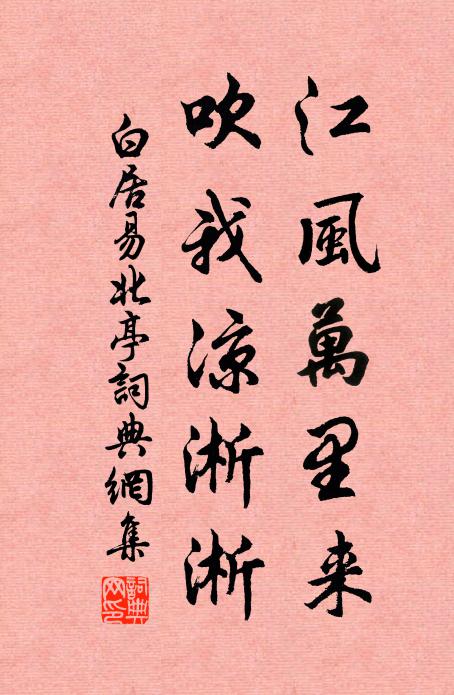 江風萬里来
吹我凉淅淅
白居易北亭詞典網集
詞典网印